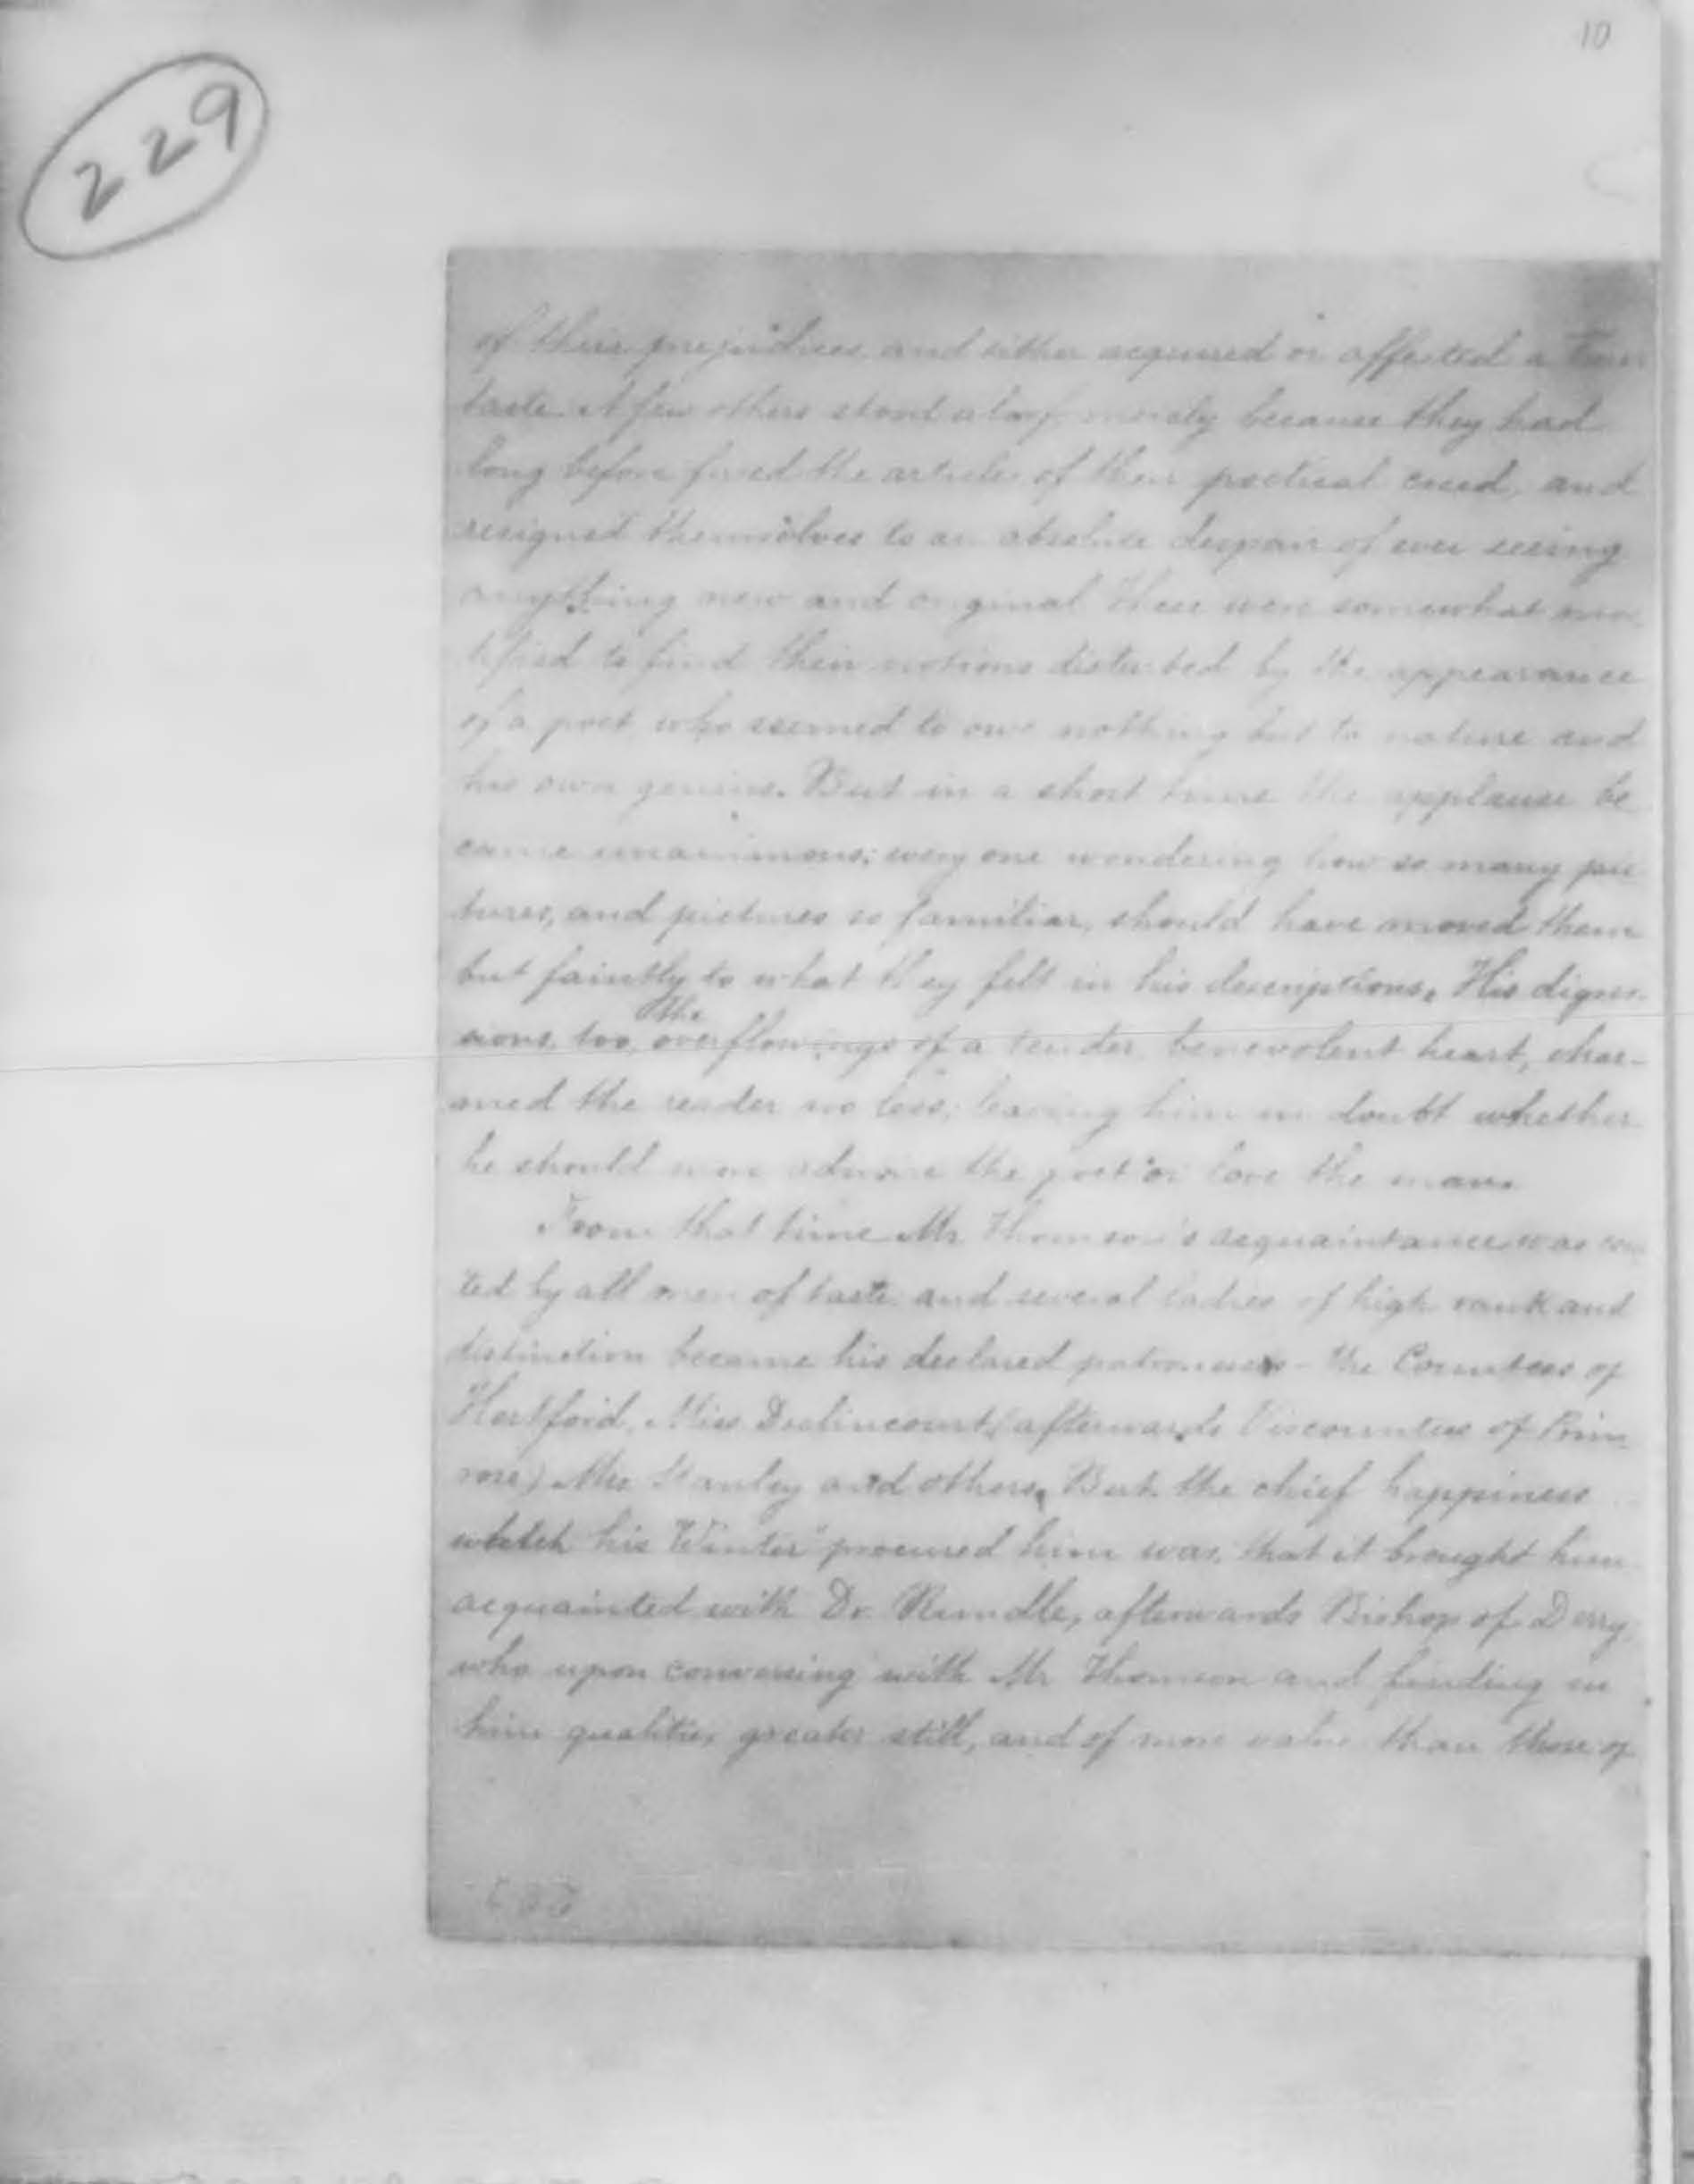 10
229
of their prejudices and either acquired or affected a
taste. A few others stood aloof, merely because they had
long before fixed the articles of their poetical creed, and
resigned themselves to an absolute despair of ever seeing
anything new and original. These were somewhat mor
tified to find their notions disturbed by the appearance
of a poet who seemed to owe nothing but to nature and
his own genius. But in a short time the applause be
came unanimous; every one wondering how so many pic
tures, and pictures so familiar, should have moved them
but faintly to what they felt in his descriptions. His digres-
sions, too, the overflowings of a tender benevolent heart, char-
med the reader no less; leaving him in doubt whether
he should more admire the poet or love the man.
From that time Mr Thomson's acquaintance was cour
ted by all men of taste and several ladies of high rank and
distinction became his declared patronesses - the Countess of
Hertford, Miss Drelincourt (afterwards Viscountess of Prim
rose) Mrs Stanley and others. But the chief happiness
which his "Winter" procured him was, that it brought him
acquainted with Dr. Rundle, afterwards Bishop of Derry,
who upon conversing with Mr Thomson and finding in
him qualities greater still, and of more value than those of